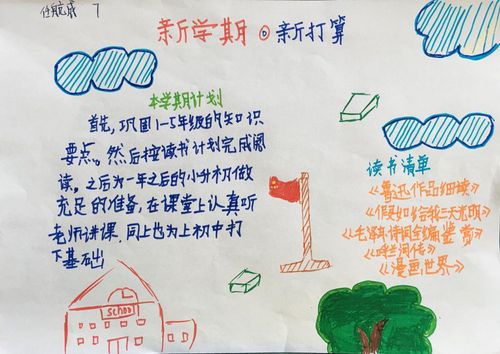 新学期·新打算
本学期计划
首先,巩固1-5年级的知识
要点。然后按读书计划完成阅
读。之后为一年之后的小升初做
充足的准备,在课堂上认真听
老师讲课,同上也为上初中打
下基础
读书清单
《鲁迅作品细读》
《假如给我三天光明》
《毛泽东诗词全编鉴赏》
《呼兰河传》
《漫画世界》
SCHOOL